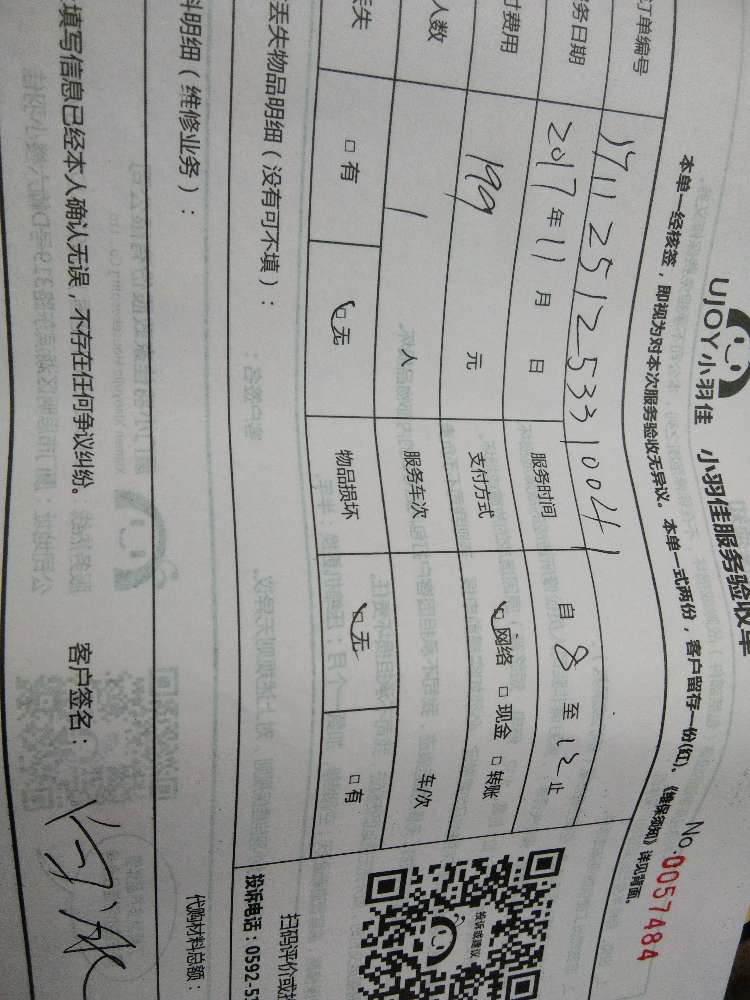 UJOY小羽佳 小羽佳服务验收单
No.0057484
本单一经核签，即视为对本次服务验收无异议。本单一式两份，客户留存一份(红)。《维保须知》详见背面。
订单编号 1711251253310041
务日期 2017年11月 日 服务时间 自8至12止
付费用 199 元 支付方式 □网络 □现金 □转账
人数 1 人 服务车次 车/次
丢失 □有 □无 物品损坏 □无 □有
丢失物品明细（没有可不填）：
料明细（维修业务）：
代购材料总额：
填写信息已经本人确认无误，不存在任何争议纠纷。 客户签名：
投诉或建议
扫码评价或
投诉电话：0592-5